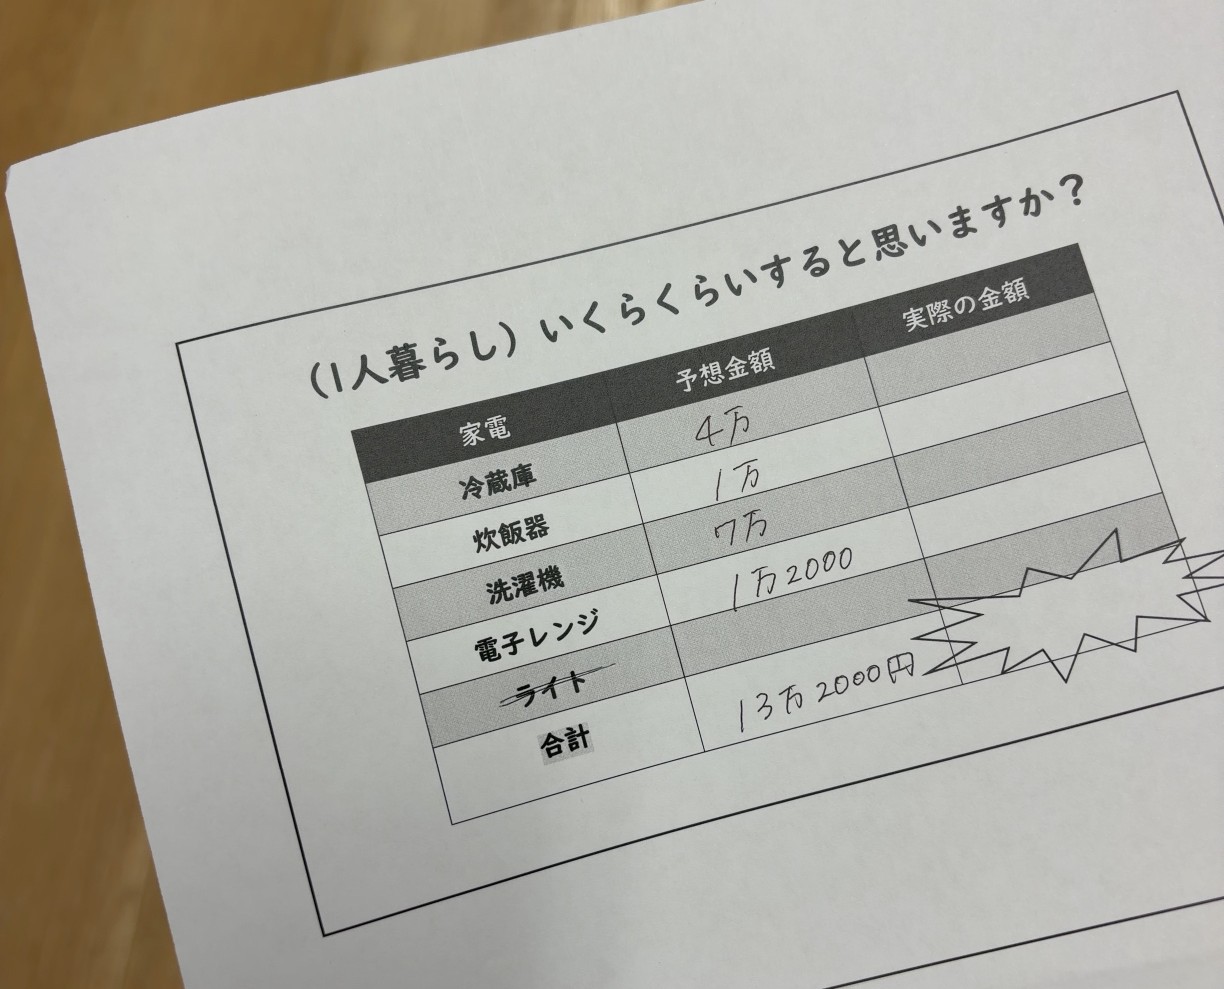 (1人暮らし)いくらくらいすると思いますか？
家電 予想金額 実際の金額
冷蔵庫 4万
炊飯器 1万
洗濯機 7万
電子レンジ 1万2000
ライト
合計 13万2000円